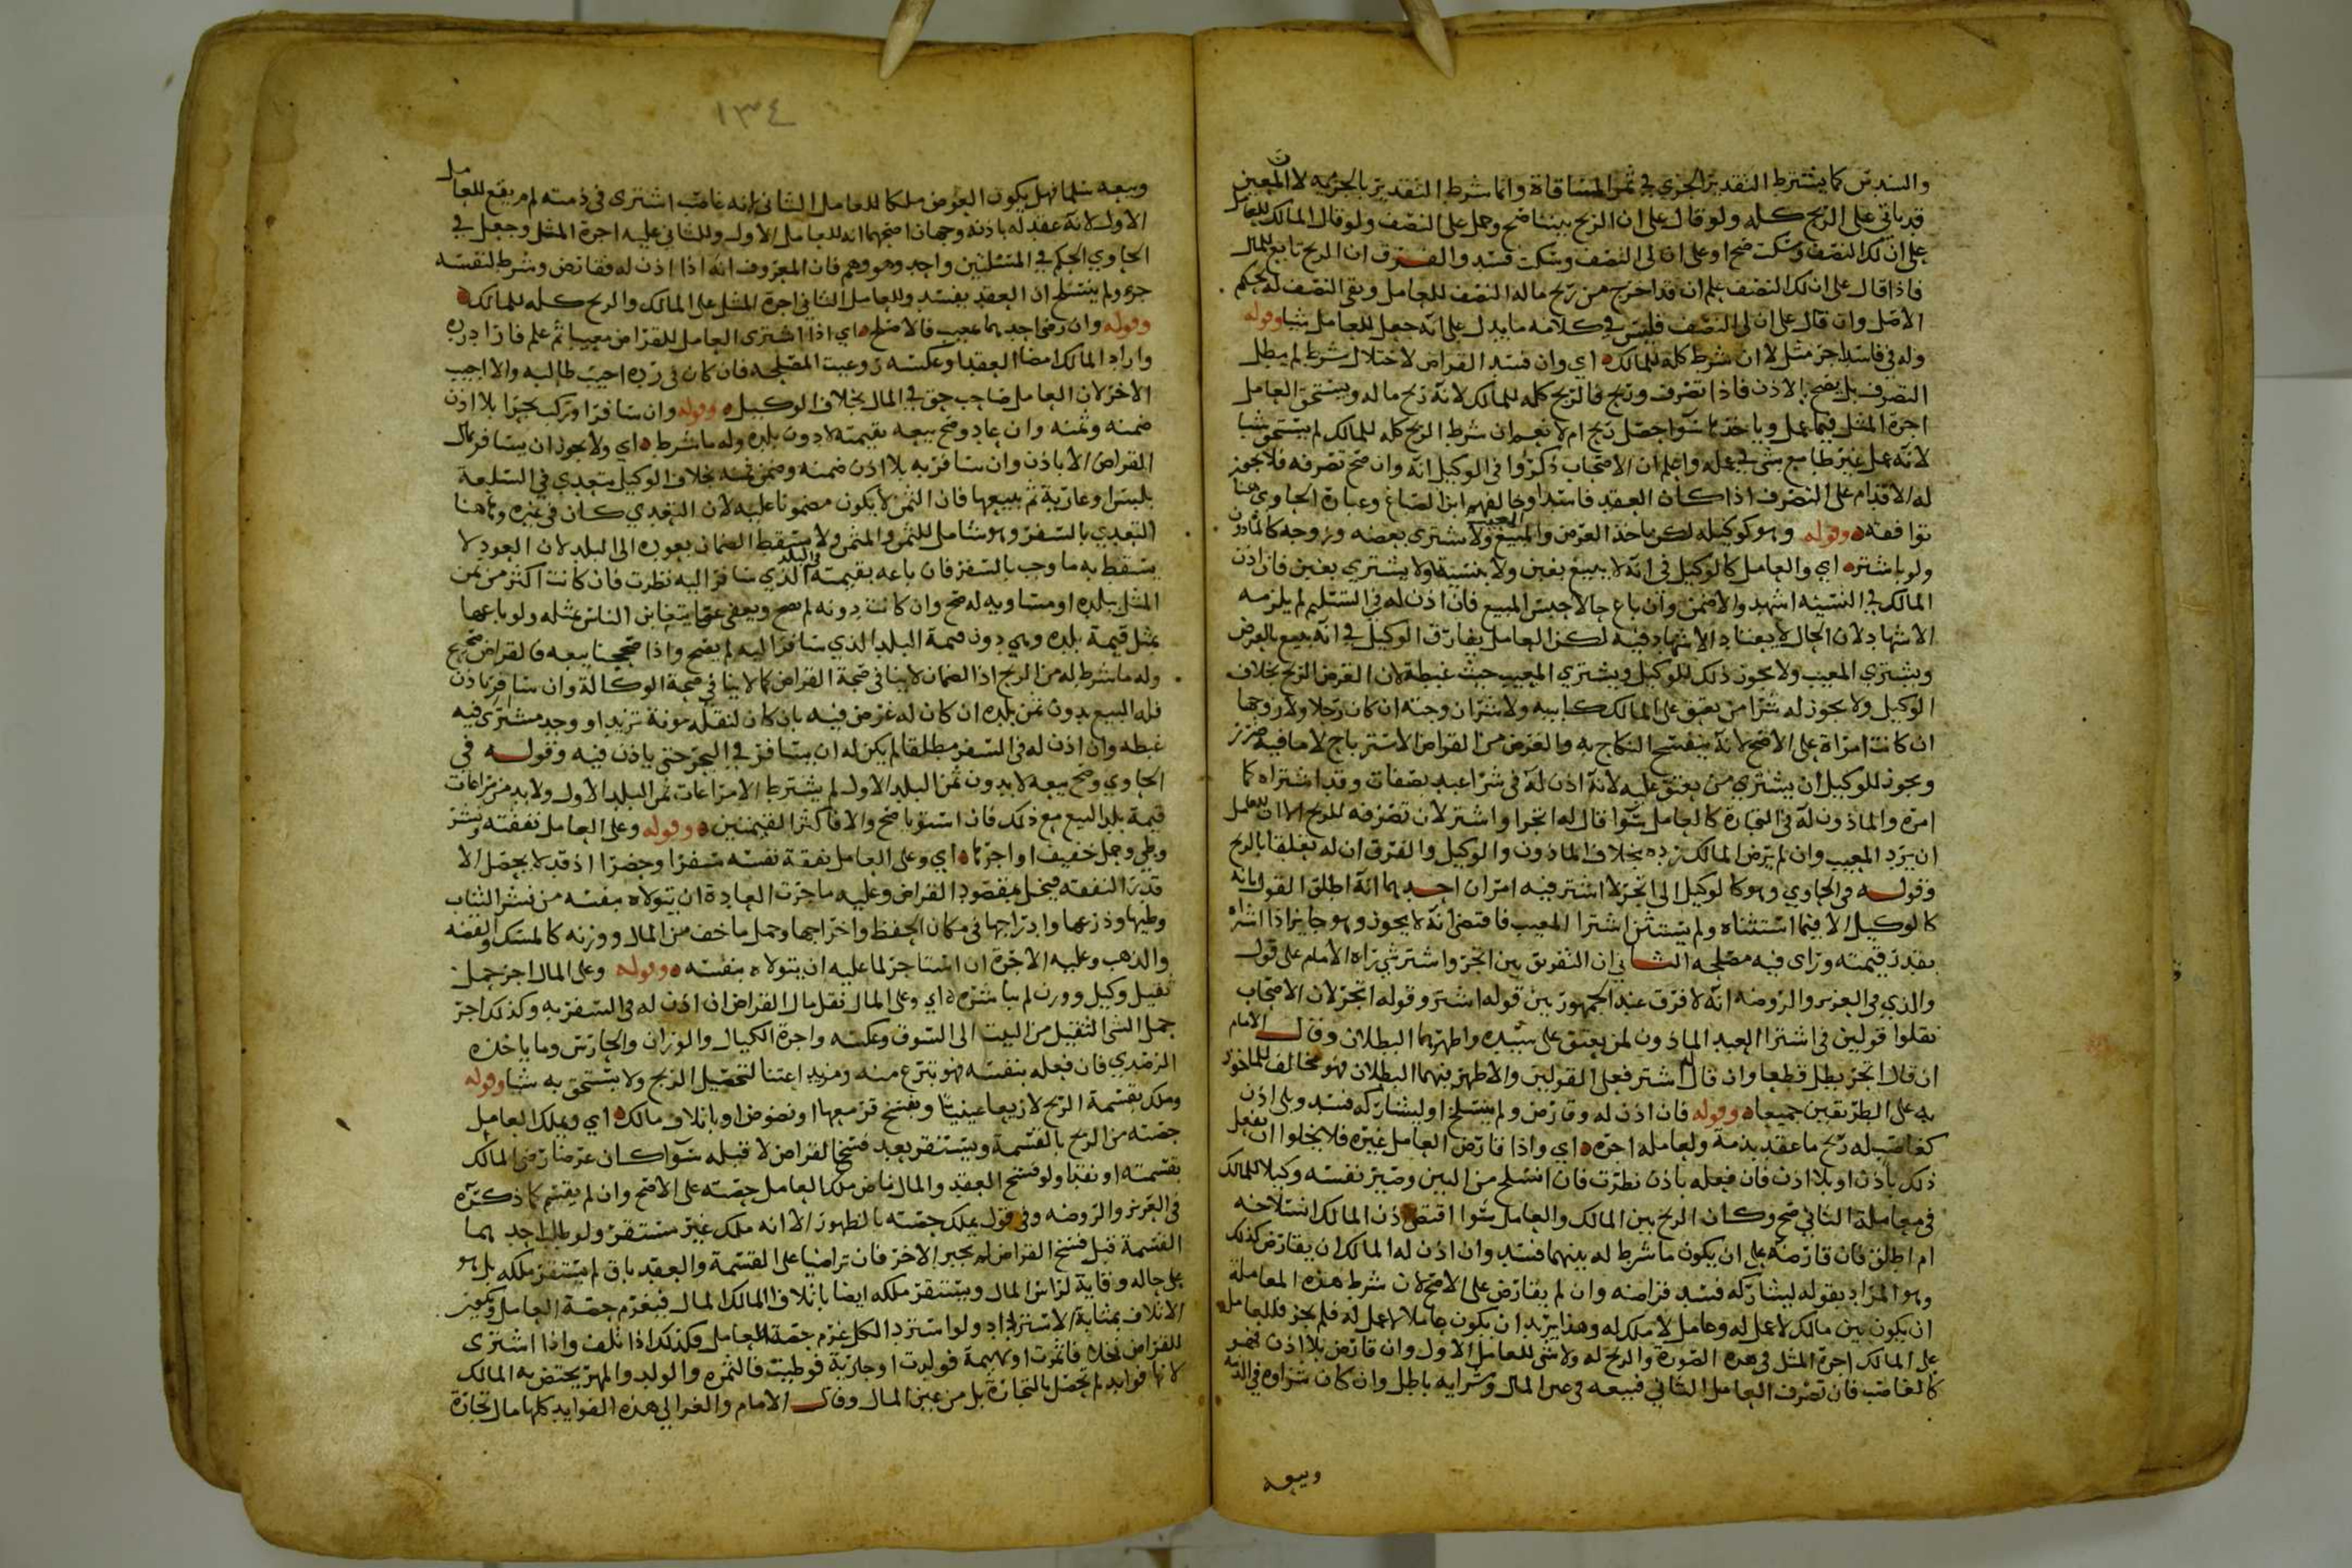 والسدس كما يشترط التقدير الجزي في ثمر المساقاة وانما شرط التقدير بالجزيه لان المعين
قد ياتي على الربح كله ولو قال على ان الربح بيننا صح وحمل على النصف ولو قال المالك للعامل
على ان لك النصف وسكت صح او على ان لي النصف وسكت فسد والفرق ان الربح تابع للمال
فاذا قال على ان لك النصف علم ان قد اخرج من ربح ماله النصف للعامل وبقى النصف له بحكم
الاصل وان قال على ان لي النصف فليس في كلامه ما يدل على انه جعل للعامل شيا وقوله
وله في فاسد اجر مثل لا ان شرط كله للمالك اي وان فسد القراض لاختلال شرط لم يبطل
التصرف بل يصح الاذن فاذا تصرف وربح فالربح كله للمالك لانه ربح ماله ويستحق العامل
اجرة المثل فيما عمل وياخذها سوآ حصل ربح ام لا نعم ان شرط الربح كله للمالك لم يستحق شيا
لانه عمل غير طامع شي في عمله واعلم ان الاصحاب ذكروا في الوكيل انه وان صح تصرفه فلا يجوز
له الاقدام على التصرف اذا كان العقد فاسدا وخالفهم ابن الصباغ وعبارة الحاوي هنا
توافقه وقوله وهو كوكيله لكن ياخذ العرض والمبيع ولا يشترى بعضه وزوجه كالماذون
ولو باشتره اي والعامل كالوكيل في انه لا يبيع بغبن ولا بنسية ولا يشتري بغبن فان اذن
المالك في النسية اشهد والا ضمن وان باع حالا حبس المبيع فان اذن له في التسليم لم يلزمه
الاشهاد لان الحال لا يعتاد الاشهاد فيه لكن العامل يفارق الوكيل في انه يبيع بالعرض
ويشتري المعيب ولا يجوز ذلك للوكيل ويشتري المعيب حيث غبطة لان الغرض الربح بخلاف
الوكيل ولا يجوز له شرا من يعتق على المالك كابيه ولا شرا زوجته ان كان رجلا ولا زوجها
ان كانت امراة على الاصح لانه ينفسخ النكاح به والغرض من القراض الاسترباح لا ما فيه ضرر
ويجوز للوكيل ان يشتري من يعتق عليه لانه اذن له في شرا عبد بصفات وقد اشتراه كما
امره والماذون له في التجارة كالعامل سوآ قال له اتجر او اشتر لان تصرفه للربح الا ان للعامل
ان يرد المعيب وان لم يرض المالك رده بخلاف الماذون والوكيل والفرق ان له تعلقا بالربح
وقوله في الحاوي وهو كالوكيل الى اتجر لا اشتر فيه امران احدهما انه اطلق القول بانه
كالوكيل الا فيما استثناه ولم يستثن اشترا المعيب فاقتضى انه لا يجوز وهو جايز اذا اشتراه
بقدر قيمته وراى فيه مصلحه الثاني ان التفريق بين اتجر واشتر شي راه الامام على قول
والذي في العزيز والروضه انه لا فرق عند الجمهور بين قوله اشتر وقوله اتجر لان الاصحاب
نقلوا قولين في اشترا العبد الماذون لمن يعتق على سيده واظهرهما البطلان وقال الامام
ان قال اتجر بطل قطعا وان قال اشتر فعلى القولين والاظهر منهما البطلان فهو مخالف للماخوذ
به على الطريقين جميعا وقوله فان اذن له وقارض ولم ينسلخ او ليشاركه فسد وبلا اذن
كغاصب له ربح ما عقد بذمة ولعامله اجره اي واذا قارض العامل غيره فلا يخلوا ان يفعل
ذلك باذن او بلا اذن فان فعله باذن نظرت فان انسلخ من البين وصير نفسه وكيلا للمالك
في معاملة الثاني صح وكان الربح بين المالك والعامل سوا اقتضى اذن المالك انسلاخه
ام اطلق فان قارضه على ان يكون ما شرط له بينهما فسد وان اذن له المالك ان يقارض كذلك
وهو المراد بقوله ليشاركه فسد قراضه وان لم يقارض على الاصح لان شرط هذه المعاملة
ان يكون بين مالك لا عمل له وعامل لا ملك له وهذا يريد ان يكون عاملا لا عمل له فلم يجز فللعامل
على المالك اجرة المثل في هذه الصورة والربح له ولا شي للعامل الاول وان قارض بلا اذن فهو
كالغاصب فان تصرف العامل الثاني فبيعه في عين المال وشرايه باطل وان كان شراوه في الذمة
وبيعه
١٣٤
وبيعه سلما فهل يكون العرض ملكا للعامل الثاني انه غاصب اشترى في ذمته ام يقع للعامل
الاول لانه عقد له باذنه وجهان اصحهما انه للعامل الاول وللثاني عليه اجرة المثل وجعل في
الحاوي الحكم في المسئلتين واحد وهو وهم فان المعروف انه اذا اذن له فقارض وشرط لنفسه
جزء ولم ينسلخ ان العقد يفسد وللعامل الثاني اجرة المثل على المالك والربح كله للمالك
وقوله وان رضى احدهما بمعيب فالاصلح اي اذا اشترى العامل للقراض معيبا ثم علم فاراد رده
واراد المالك امضا العقد او عكسه روعيت المصلحه فان كان في رده اجيب طالبه والا اجيب
الاخر لان العامل صاحب حق في المال بخلاف الوكيل وقوله وان سافر او ركب بحرا بلا اذن
ضمنه وثمنه وان عاد وصح بيعه بقيمته لا دون بلده وله ما شرط اي ولا يجوز ان يسافر بمال
القراض الا باذن وان سافر به بلا اذن ضمنه وضمن ثمنه بخلاف الوكيل يتعدي في السلعة
بلبس او عارية ثم يبيعها فان الثمن لا يكون مضمونا عليه لان التعدي كان في غيره وهاهنا
التعدي بالسفر وهو شامل للثمن والمثمن ولا يسقط الضمان بعوده الى البلد لان العود لا
يسقط به ما وجب بالسفر فان باعه بقيمته في البلد الذي سافر اليه نظرت فان كانت اكثر من ثمن
المثل ببلده او مساويه له صح وان كانت دونه لم يصح ويعفى عما يتغابن الناس بمثله ولو باعها
بمثل قيمة بلده وهي دون قيمة البلد الذي سافر اليه لم يصح واذا صححنا بيعه فالقراض صحيح
وله ما شرط له من الربح اذ الضمان لا ينافي صحة القراض كما لا ينافي صحة الوكالة وان سافر باذن
فله البيع بدون ثمن بلده ان كان له غرض فيه بان كان لنقله مونة تزيد او وجد مشترى فيه
غبطه وان اذن له في السفر مطلقا لم يكن له ان يسافر في البحر حتى ياذن فيه وقوله في
الحاوي وصح بيعه لا بدون ثمن البلد الاول لم يشترط الا مراعات ثمن البلد الاول ولا بد من مراعات
قيمة بلد البيع مع ذلك فان استويا صح والا فاكثر القيمتين وقوله وعلى العامل نفقته ونشر
وطي وحمل خفيف او اجرتها اي وعلى العامل نفقة نفسه سفرا وحضرا اذ قد لا يحصل الا
قدر النفقه فيخل بمقصود القراض وعليه ما جرت العادة ان يتولاه بنفسه من نشر الثياب
وطيها وذرعها وادراجها في مكان الحفظ واخراجها وحمل ما خف من المال ووزنه كالمسك والفضه
والذهب وعليه الاجرة ان استاجر لما عليه ان يتولاه بنفسه وقوله وعلى المال اجر حمل
ثقيل وكيل ووزن لم يباشره اي وعلى المال نقل مال القراض ان اذن له في السفر به وكذلك اجر
حمل الشي الثقيل من البيت الى السوق وعكسه واجرة الكيال والوزان والحارس وما ياخذه
الرصدي فان فعله بنفسه فهو تبرع منه ومزيد اعتنا لتحصيل الربح ولا يستحق به شيا وقوله
وملك بقسمة الربح لا زيعا عينيا وبفسخ قر معها او نضوض او باتلاف مالك اي ويملك العامل
حصته من الربح بالقسمة ويستقر بعد فسخ القراض لا قبله سوآ كان عرضا رضى المالك
بقسمته او نقدا ولو فسخ العقد والمال ناض ملك العامل حصته على الاصح وان لم يقسم كما ذكره
في العزيز والروضه وفي قول يملك حصته بالظهور الا انه ملك غير مستقر ولو طلب احدهما
القسمة قبل فسخ القراض لم يجبر الاخر فان تراضيا على القسمة والعقد باق لم يستقر ملكه بل هو
على حاله وقاية لراس المال ويستقر ملكه ايضا باتلاف المالك المال فيغرم حصة العامل ويكون
الاتلاف بمثابة الاسترداد ولو استرد الكل غرم حصة العامل وكذلك اذا تلف واذا اشترى
للقراض نخلا فاثمرت او بهيمة فولدت او جارية فوطيت فالثمره والولد والمهر يختص به المالك
لانها فوايد لم تحصل بالتجارة بل من عين المال وقال الامام والغزالي هذه الفوايد كلها مال تجارة